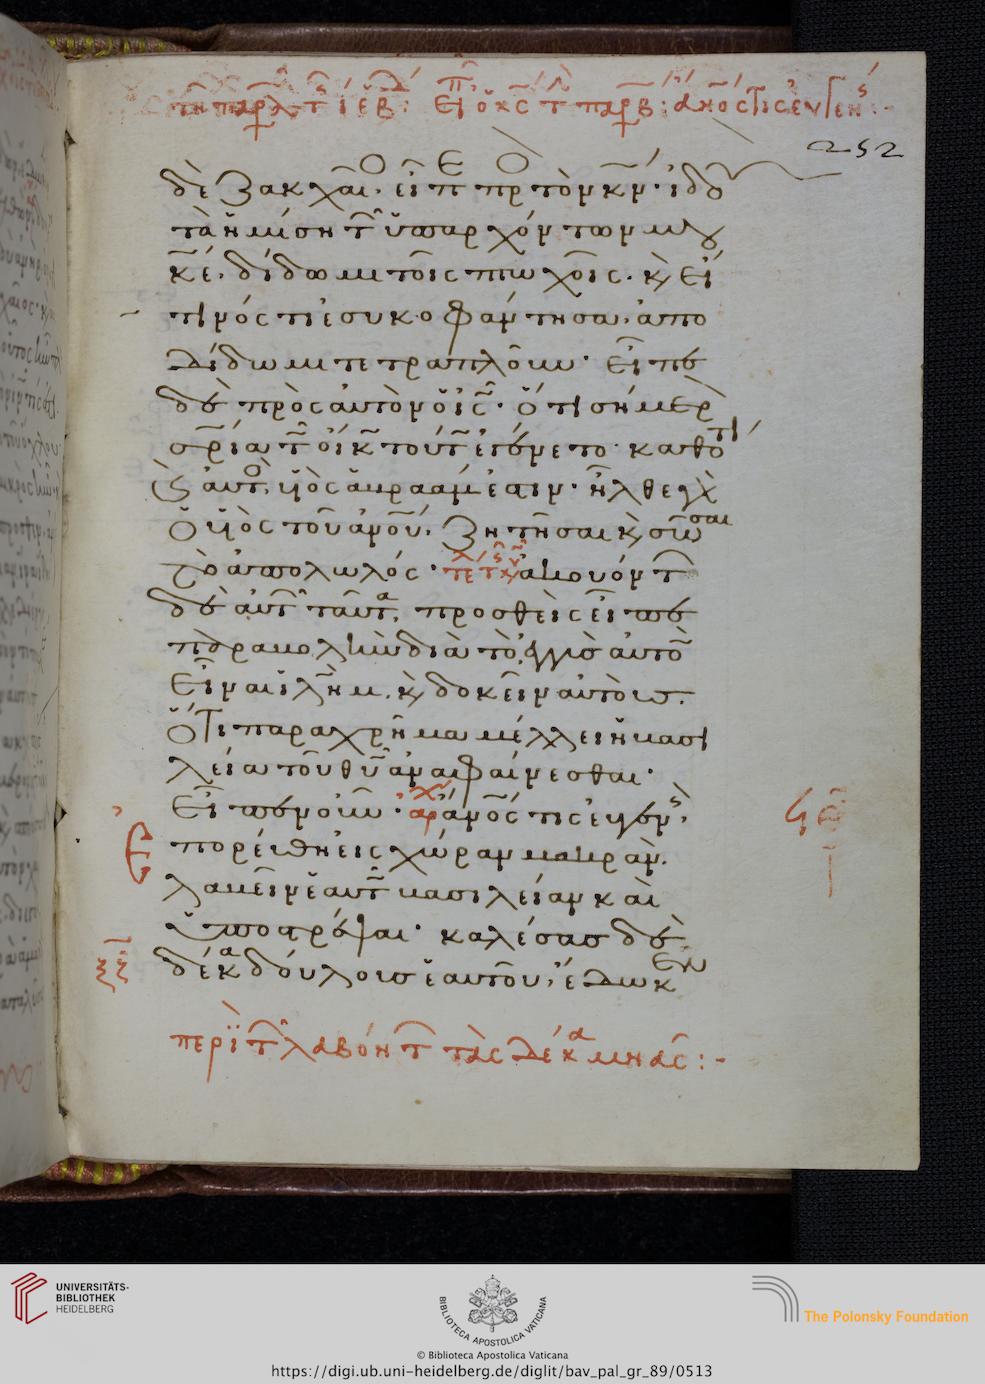 252
δὲ ζακχαῖ(ος) εἶπε πρ(ὸς) τὸν κν· ἰδοὺ
τὰ ἡμίση τ(ῶν) ὑπαρχόντων μου
κε· δίδωμι τοῖς πτωχοῖς· κ(αὶ) εἴ
τινός τι ἐσυκοφάντησα· ἀπο
δίδωμι τετραπλοῦν· εἶπε
δὲ πρὸς αὐτὸν ὁ ις· ὅτι σήμερ(ον)
σρία τ(ῶ) οἴκ(ω) τούτ(ω) ἐγένετο· καθότι
κ(αὶ) αὐτὸ(ς) υἱὸς ἀβραάμ ἐστιν· ἦλθε γὰ(ρ)
ὁ υἱὸς τοῦ ἀνου· ζητῆσαι κ(αὶ) σῶσαι
τὸ ἀπολωλός· τε ἀκουόντ(ων)
δὲ αὐτ(ῶν) ταῦτα· προσθεὶς εἶπε
παραβολὴν διὰ τὸ ἐγγὺς αὐτὸ(ν)
εἶναι ιλημ· κ(αὶ) δοκεῖν αὐτοὺς·
ὅτι παραχρῆμα μέλλει ἡ βασι
λεία τοῦ θυ ἀναφαίνεσθαι·
εἶπεν οὖν· αρχ ἀνος τις εὐγενής·
ἐπορεύθη εἰς χώραν μακράν·
λαβεῖν ἑαυτ(ῶ) βασιλείαν καὶ
ὑποστρέψαι· καλέσας δὲ
δέκα δούλους ἑαυτοῦ· ἔδωκεν
ξζ
περὶ τ(ῶν) λαβόντ(ων) τὰς δέκα μνᾶς :-
UNIVERSITÄTS-
BIBLIOTHEK
HEIDELBERG
BIBLIOTECA APOSTOLICA VATICANA
The Polonsky Foundation
© Biblioteca Apostolica Vaticana
https://digi.ub.uni-heidelberg.de/diglit/bav_pal_gr_89/0513